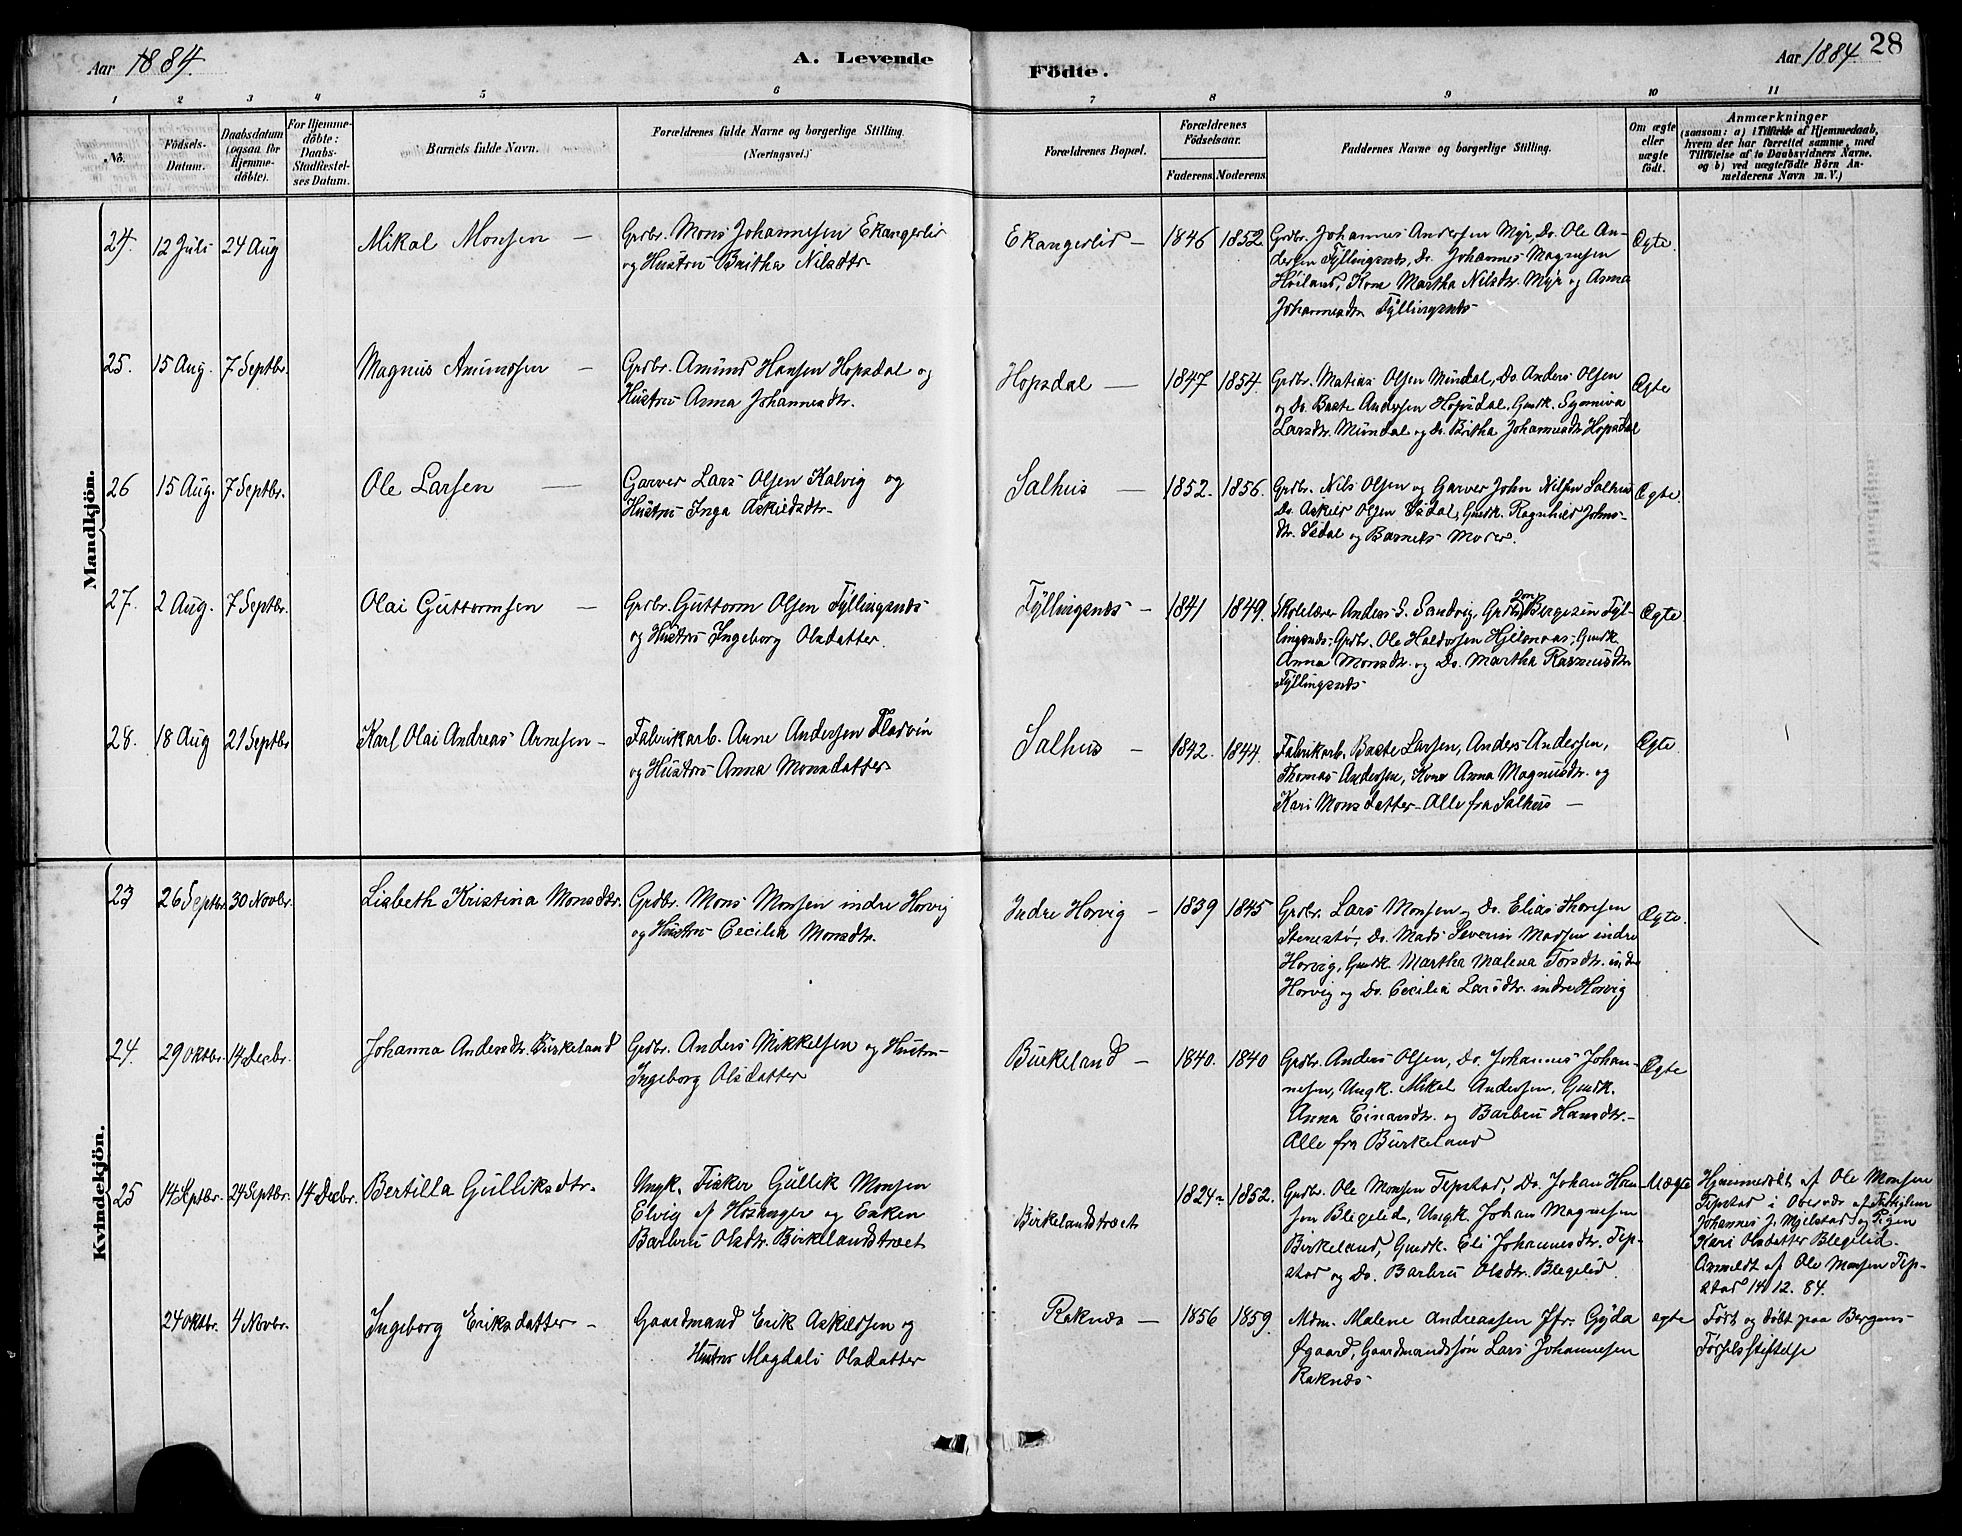 Aar 1884.
A. Levende
Födte.
Aar 1884
28
1 2 3 4 5 6 7 8 9 10 11
No.
Födsels-
Datum.
Daabsdatum
(ogsaa for
Hjemme-
döbte).
For Hjemme-
döbte:
Daabs-
Stadfæstel-
ses Datum.
Barnets fulde Navn.
Forældrenes fulde Navne og borgerlige Stilling.
(Næringsvei.)
Forældrenes Bopæl.
Forældrenes
Födselsaar.
Faderens. Moderens.
Faddernes Navne og borgerlige Stilling.
Om ægte
eller
uægte
födt.
Anmærkninger
(saasom: a) i Tilfælde af Hjemmedaab,
hvem der har forrettet samme, med
Tilföielse af to Daabsvidners Navne,
og b) ved uægtefödte Börn An-
melderens Navn m. V.)
Mandkjön.
24. 12 Juli 24 Aug
Mikal Monsen —
Grdbr. Mons Johannesen Ekangerlid
og Hustru Britha Nilsdtr
Ekangerlid — 1846 1852
Grdbr. Johannes Andersen Myr, Do. Ole An-
dersen Fyllingsnæs, Do. Johannes Magnesen
Høiland, Kone Martha Nilsdtr. Myr og Anna
Johannesdtr Fyllingsnæs
Ægte.
25. 15 Aug. 7 Septbr.
Magnus Amundsen —
Grdbr. Amund Hansen Hopsdal og
Hustru Anna Johannesdtr.
Hopsdal — 1847 1854.
Grdbr. Matias Olsen Mundal, Do. Anders Olsen
og Do. Baste Andersen Hopsdal, Gmdk. Synneva
Larsdtr. Mundal og Do. Britha Johannesdtr Hopsdal
Ægte
26 15 Aug. 7 Septbr.
Ole Larsen —
Garver Lars Olsen Kalvig og
Hustru Inga Askildsdtr.
Salhus — 1852. 1856.
Grdbr. Nils Olsen og Garver John Nilsen Salhus
Do. Askild Olsen Isdal, Gmdk. Ragnhild Johns-
dtr. Isdal og Barnets Moder.
Ægte.
27. 2 Aug. 7 Septbr.
Olai Guttormsen —
Grdbr. Guttorm Olsen Fyllingsnæs
og Hustru Ingeborg Olsdatter.
Fyllingsnæs — 1841 1849.
Skolelærer Anders S. Sandvig, Grdbr Bergesen Fyl-
lingsnæs, Grdbr. Ole Haldorsen Hjelmaas, Gmdk.
Anna Monsdtr. og Do. Martha Rasmusdtr
Fyllingsnæs
Ægte.
28. 18 Aug 21 Septbr
Karl Olai Andreas Arnesen —
Fabrikarb. Arne Andersen Fladvin
og Hustru Anna Monsdatter
Salhus — 1842. 1844.
Fabrikarb. Baste Larsen, Anders Andersen,
Thomas Andersen, Kone Anna Magnusdtr. og
Kari Monsdatter — Alle fra Salhus —
Ægte.
Kvindekjön.
23 26 Septbr. 30 Novbr.
Lisbeth Kristina Monsdtr.
Grdbr. Mons Monsen indre Horvig
og Hustru Cecilia Monsdtr.
Indre Horvig — 1839 1845
Grdbr. Lars Monsen og Do. Elias Thoresen
Stenestø, Do. Mads Severin Madsen indre
Horvig, Gmdk. Martha Malena Torsdtr. indre
Horvig og Do. Cecilia Larsdtr. indre Horvig
Ægte.
24. 29 Oktbr. 14 Decbr.
Johanna Andersdtr. Burkeland
Grdbr. Anders Mikkelsen og Hustru
Ingeborg Olsdatter
Burkeland — 1840. 1840
Grdbr. Anders Olsen, Do. Johannes Johan-
nesen, Ungk. Mikal Andersen, Gmdk.
Anna Einarsdtr. og Barbru Hansdtr. —
Alle fra Burkeland
Ægte
25 14 Septbr. 24 Septbr. 14 Decbr.
Bertilla Gulliksdtr.
Ungk. Fisker Gullik Monsen
Elvig af Hosanger og Enken
Barbru Olsdtr. Birkelandstræet
Birkelandstræet
1824 1852.
Grdbr. Ole Monsen Tepstad, Do. Johan Han-
sen Blegelid, Ungk. Johan Magnesen
Birkeland, Gmdk. Eli Johannesdtr. Tep-
stad og Do. Barbru Olsdtr. Blegelid.
Uægte
Hjemmedøbt af Ole Monsen
Tepstad i Overvær af Fattiglem
Johannes J. Mjelstad og Pigen
Kari Olsdatter Blegelid.
Anmeldt af Ole Monsen Tep-
stad 14/12. 84.
24 Oktbr. 4 Novbr.
Ingeborg Eriksdatter —
Gaardmand Erik Askildsen og
Hustru Magdali Olsdatter
Raknæs — 1856 1859.
Mdm. Malene Andreassen Jfr. Gyda
Øgaard, Gaardmandssøn Lars Johannesen
Raknæs
ægte
Født og døbt paa Bergens
Fødselsstiftelse